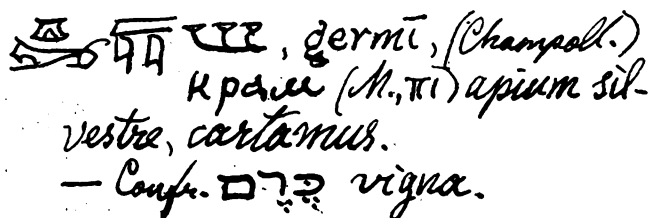 , germī, (Champoll.)
ⲕⲣⲁⲙ (M., ⲡⲓ) apium sil-
vestre, cartamus.
— Confr. כֶּרֶם vigna.